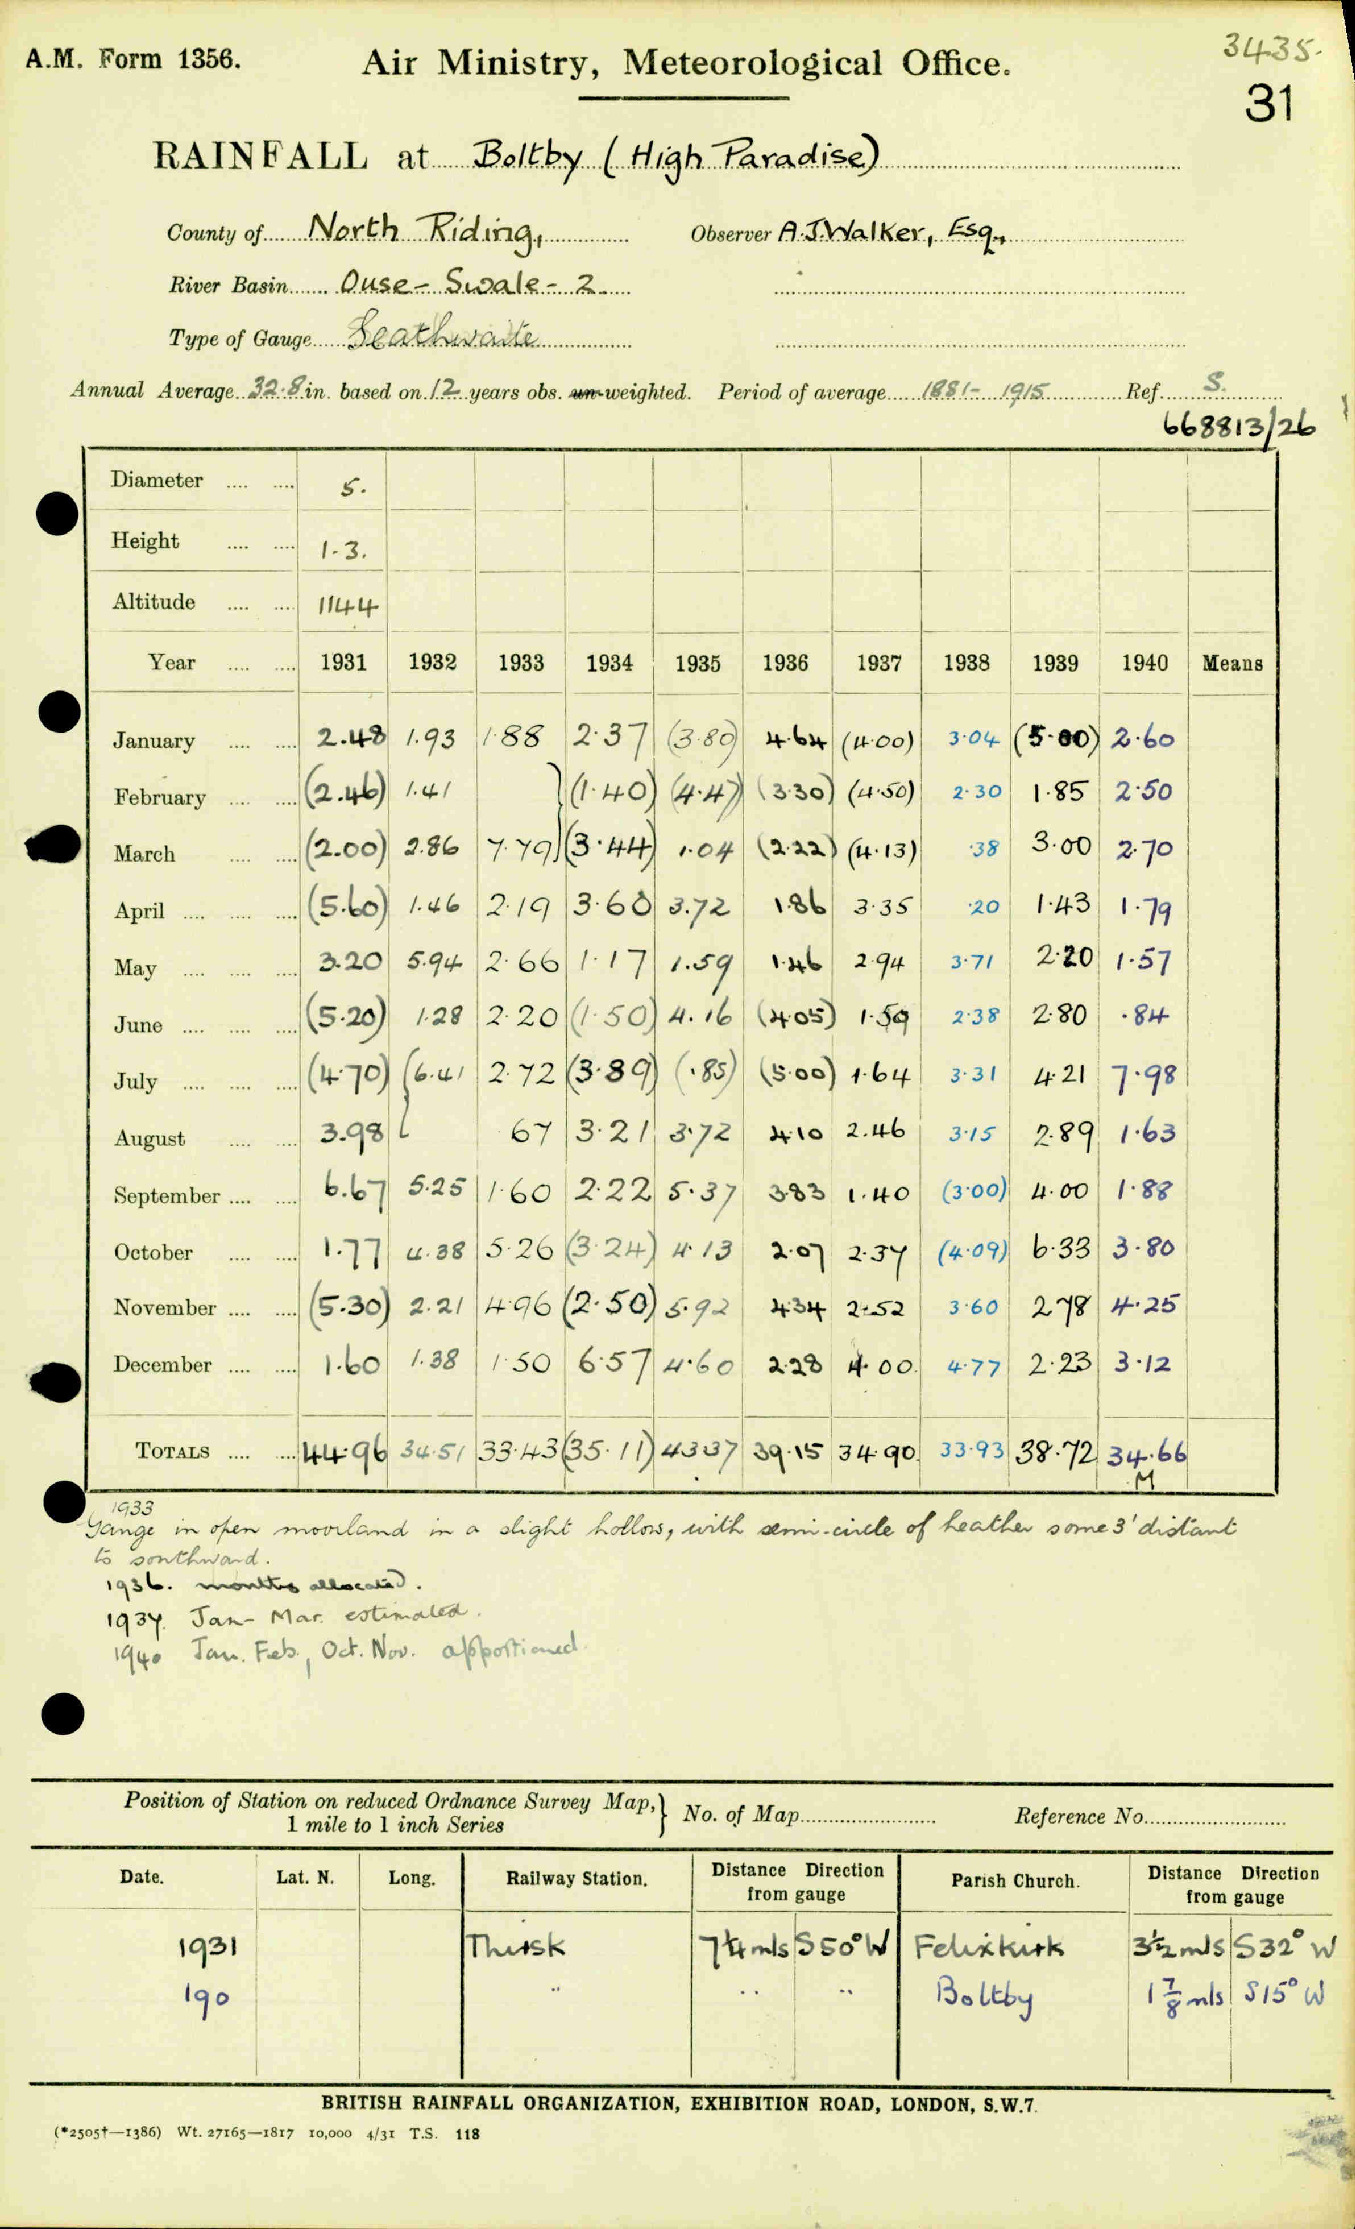 A.M. Form 1356.
Air Ministry, Meteorological Office.
3435.
31
RAINFALL at Boltby (High Paradise)
County of North Riding, Observer A.J.Walker, Esq.,
River Basin Ouse - Swale - 2
Type of Gauge Seathwaite
Annual Average 32.8 in. based on 12 years obs. un-weighted. Period of average 1881 - 1915 Ref. S.
668813/26
Diameter 5.
Height 1-3.
Altitude 1144
Year 1931 1932 1933 1934 1935 1936 1937 1938 1939 1940 Means
January 2.48 1.93 1.88 2.37 (3.80) 4.64 (4.00) 3.04 (5.00) 2.60
February (2.46) 1.41 } (1.40) (4.47) (3.30) (4.50) 2.30 1.85 2.50
March (2.00) 2.86 7.79 (3.44) 1.04 (2.22) (4.13) .38 3.00 2.70
April (5.60) 1.46 2.19 3.60 3.72 1.86 3.35 .20 1.43 1.79
May 3.20 5.94 2.66 1.17 1.59 1.46 2.94 3.71 2.20 1.57
June (5.20) 1.28 2.20 (1.50) 4.16 (4.05) 1.59 2.38 2.80 .84
July (4.70) {6.41 2.72 (3.89) (.85) (5.00) 1.64 3.31 4.21 7.98
August 3.98 67 3.21 3.72 4.10 2.46 3.15 2.89 1.63
September 6.67 5.25 1.60 2.22 5.37 3.83 1.40 (3.00) 4.00 1.88
October 1.77 4.38 5.26 (3.24) 4.13 2.07 2.37 (4.09) 6.33 3.80
November (5.30) 2.21 4.96 (2.50) 5.92 4.34 2.52 3.60 2.78 4.25
December 1.60 1.38 1.50 6.57 4.60 2.28 4.00 4.77 2.23 3.12
TOTALS 44.96 34.51 33.43 (35.11) 43.37 39.15 34.90 33.93 38.72 34.66
M
1933
Gauge in open moorland in a slight hollow, with semi-circle of heather some 3' distant
to southward.
1936. months allocated.
1937. Jan - Mar. estimated.
1940 Jan. Feb., Oct. Nov. apportioned.
Position of Station on reduced Ordnance Survey Map, } No. of Map Reference No.
1 mile to 1 inch Series
Date. Lat. N. Long. Railway Station. Distance Direction from gauge Parish Church. Distance Direction from gauge
1931 Thirsk 7¼ mls S 50° W Felixkirk 3½ mls S 32° W
190 " " " Boltby 1⅞ mls S 15° W
BRITISH RAINFALL ORGANIZATION, EXHIBITION ROAD, LONDON, S.W.7.
(*2505†—1386) Wt. 27165—1817 10,000 4/31 T.S. 118